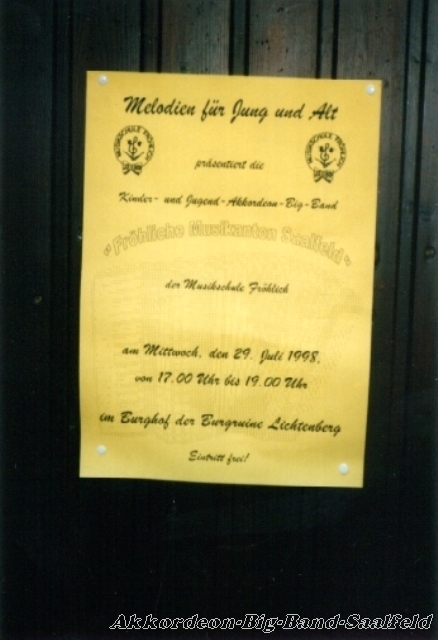 Melodien für Jung und Alt
MUSIKSCHULE FRÖHLICH
MUSIKSCHULE FRÖHLICH
präsentiert die
Kinder- und Jugend-Akkordeon-Big-Band
"Fröhliche Musikanten Saalfeld"
der Musikschule Fröhlich
am Mittwoch, den 29. Juli 1998,
von 17.00 Uhr bis 19.00 Uhr
im Burghof der Burgruine Lichtenberg
Eintritt frei!
Akkordeon-Big-Band-Saalfeld